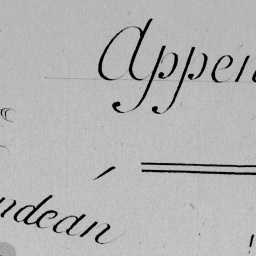 Appen
ndean